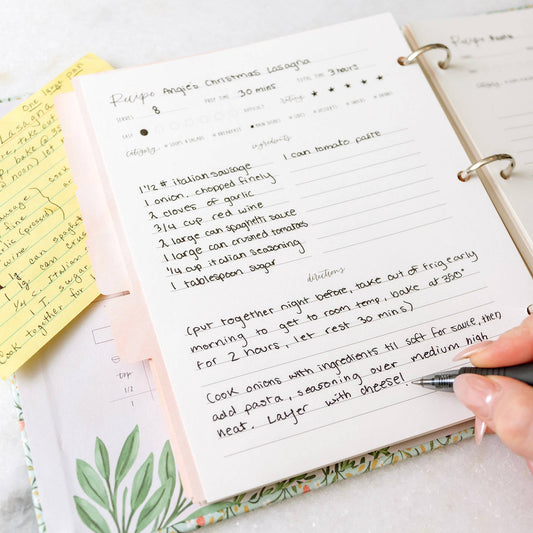 Lasagna
One large pan
Recipe Angie's Christmas Lasagna
SERVES 8 PREP TIME 30 mins TOTAL TIME 3 hours
EASY DIFFICULT Rating: ★ ★ ★ ★ ★
Category: SOUPS & SALADS BREAKFAST MAIN DISHES SIDES DESSERTS SNACKS DRINKS
ingredients
1 1/2 # italian sausage
1 onion, chopped finely
2 cloves of garlic
3/4 cup red wine
2 large can spaghetti sauce
2 large can crushed tomatoes
1/4 cup italian seasoning
1 tablespoon sugar
1 can tomato paste
directions
(put together night before, take out of frig early
morning to get to room temp, bake at 350°
for 2 hours, let rest 30 mins)
Cook onions with ingredients til soft for sauce, then
add pasta, seasoning over medium high
heat. Layer with cheese!
Recipe Name
Cook together for